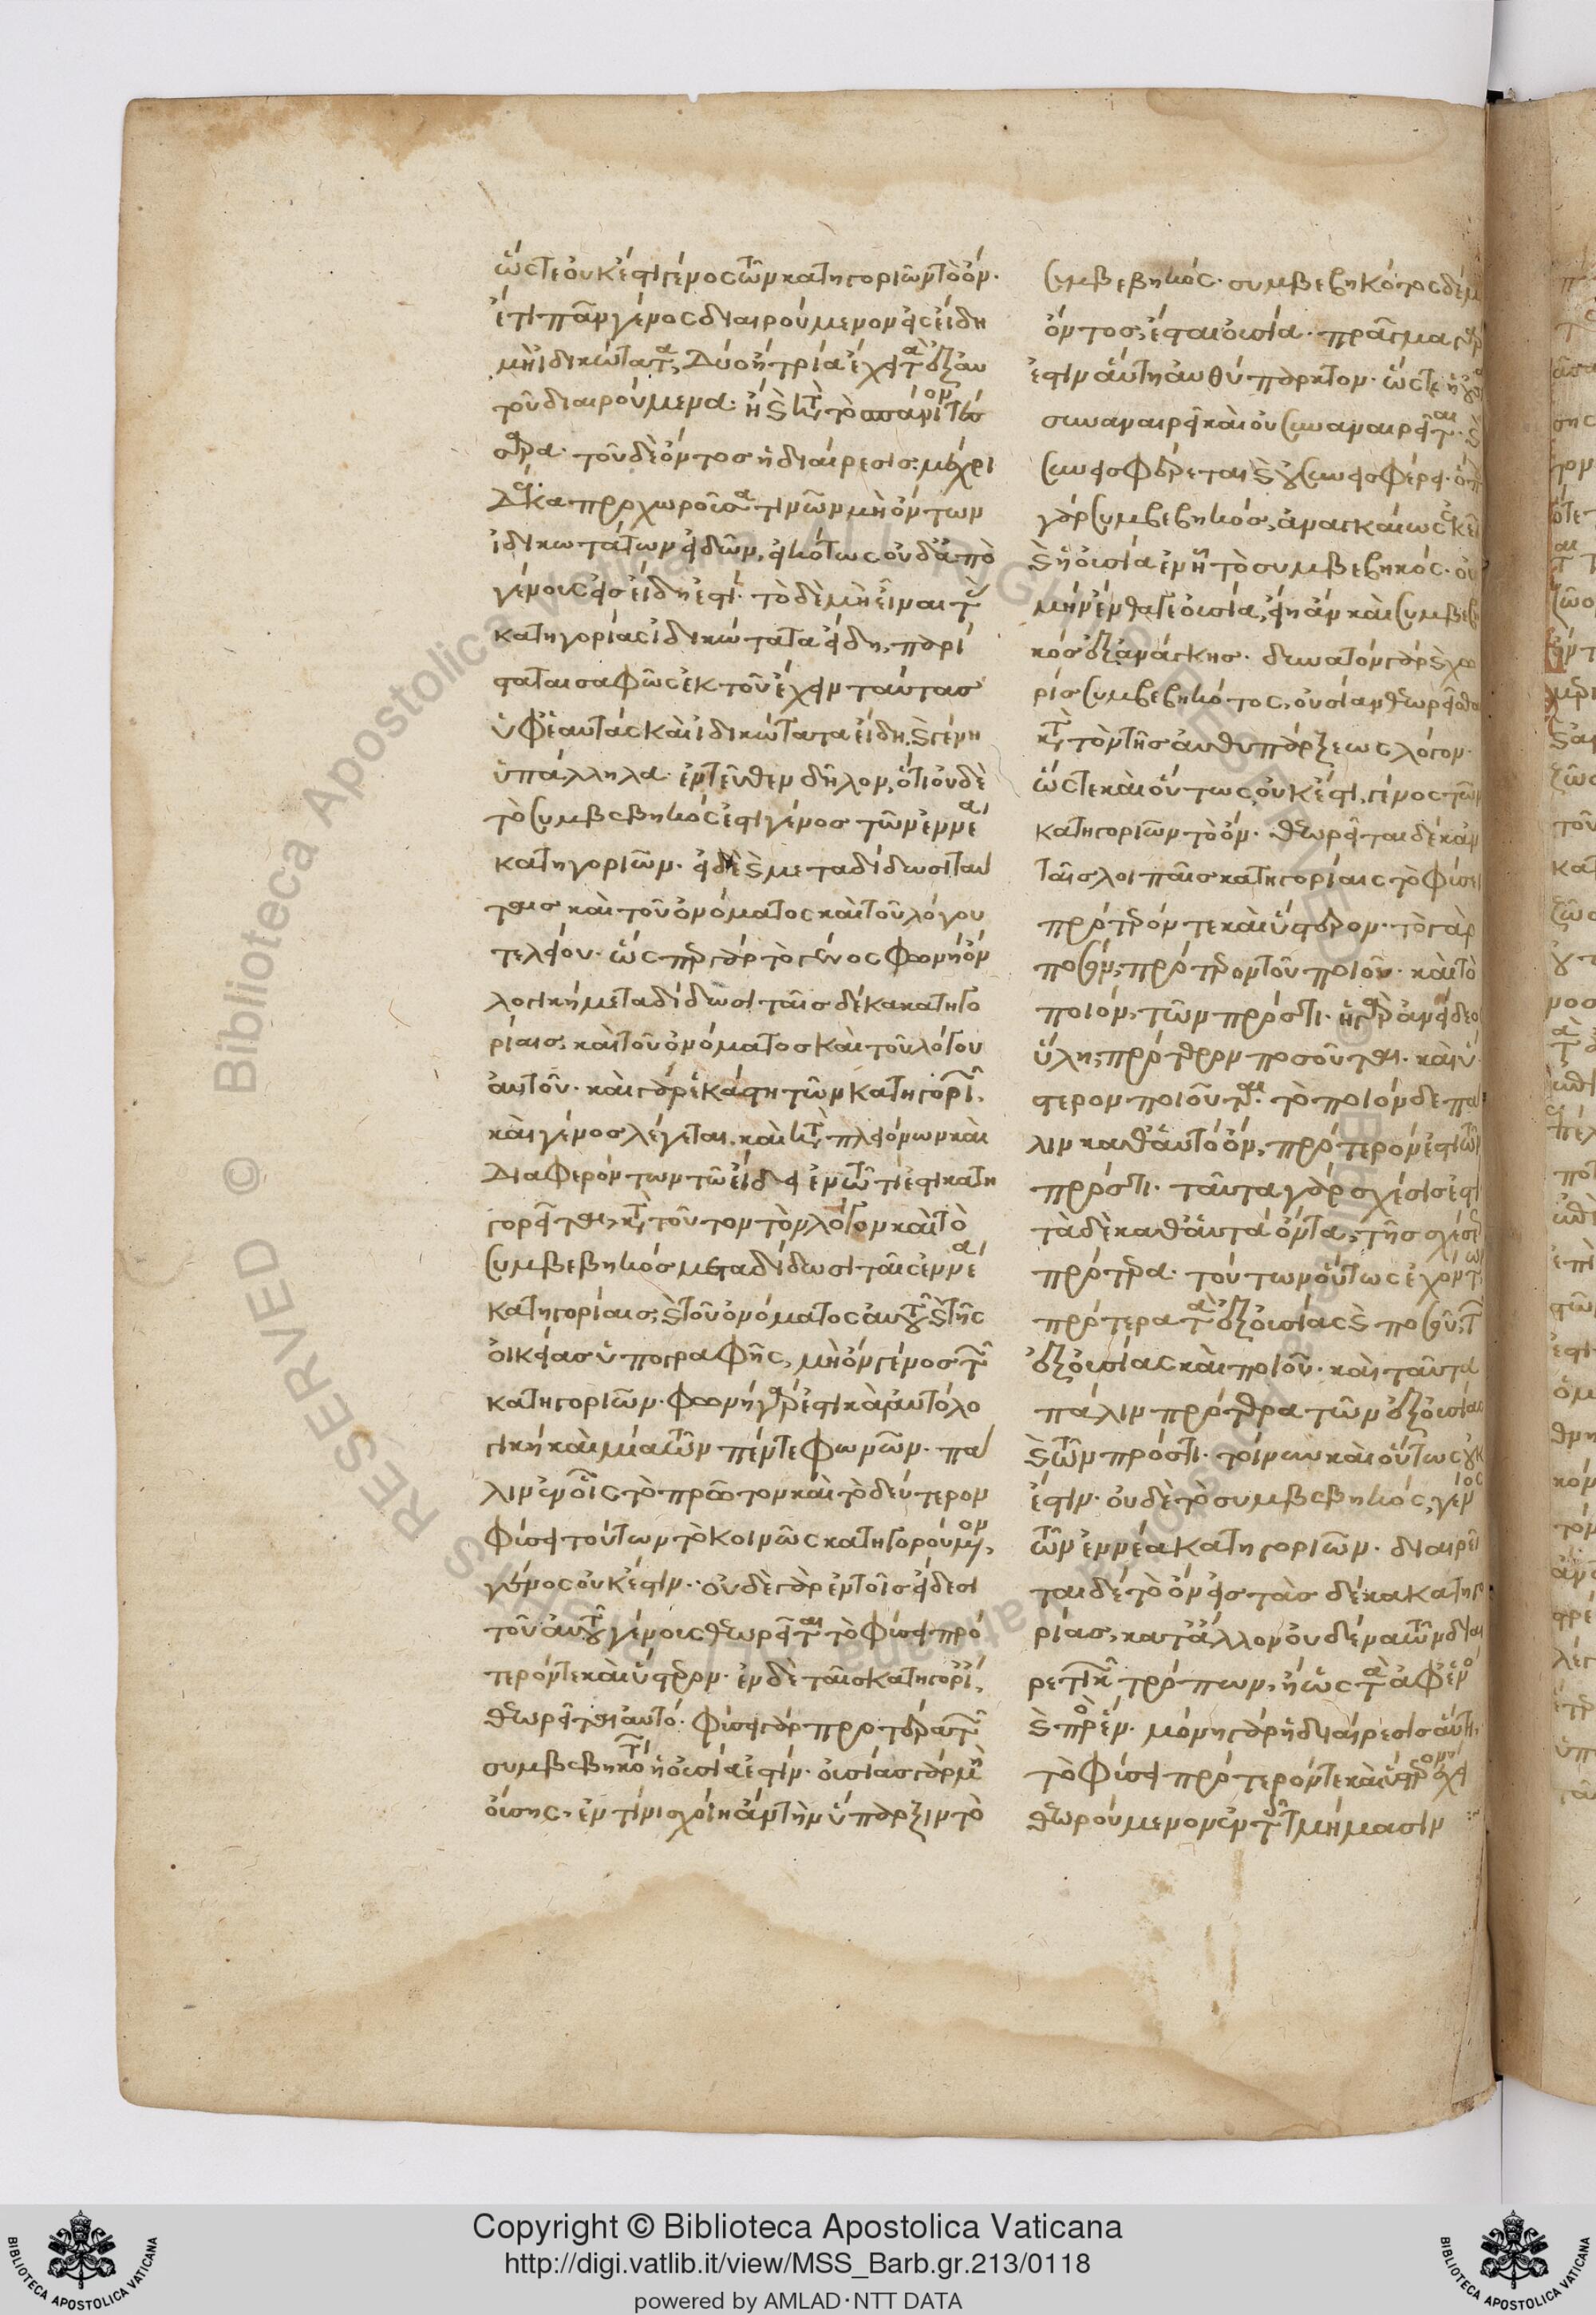 ὥστε οὐκ ἔστι γένος τῶν κατηγοριῶν τὸ ὄν·
ἔτι πᾶν γένος διαιρούμενον εἰς εἴδη
μὴ ἰδικώτατα, δύο ἢ τρία ἔχει τὰ ἐξ αὐ
τοῦ διαιρούμενα· ἢ καὶ κατὰ τὸ σπάνιον
τοῦ δὲ ὄντος ἡ διαίρεσις μέχρι
δέκα προχωροῦσα τινῶν μὴ ὄντων
ἰδικωτάτων εἰδῶν, εἰκότως οὐδ' ἀπὸ
γένους εἰς εἴδη ἐστί· τὸ δὲ μὴ εἶναι τὰς
κατηγορίας ἰδικώτατα εἴδη, παρί
σταται σαφῶς ἐκ τοῦ ἔχειν ταύτας
ὑφ' ἑαυτὰς καὶ ἰδικώτατα εἴδη καὶ γένη
ὑπάλληλα· ἐντεῦθεν δῆλον, ὅτι οὐδὲ
τὸ συμβεβηκός ἐστι γένος τῶν ἐννέα
κατηγοριῶν· εἰ δὲ καὶ μεταδίδωσι ταύ
ταις καὶ τοῦ ὀνόματος καὶ τοῦ λόγου
τελείου· ὥσπερ γὰρ τὸ γένος φωνὴ ὂν
λογικὴ μεταδίδωσι ταῖς δέκα κατηγο
ρίαις, καὶ τοῦ ὀνόματος καὶ τοῦ λόγου
αὐτοῦ· καὶ γὰρ ἑκάστη τῶν κατηγοριῶν
καὶ γένος λέγεται, καὶ κατὰ πλειόνων καὶ
διαφερόντων τῷ εἴδει ἐν τῷ τί ἐστι κατη
γορεῖται, κατὰ τοῦτον τὸν λόγον καὶ τὸ
συμβεβηκὸς μεταδίδωσι ταῖς ἐννέα
κατηγορίαις, καὶ τοῦ ὀνόματος αὐτοῦ καὶ τῆς
οἰκείας ὑπογραφῆς, μὴ ὂν γένος τῶν
κατηγοριῶν· φωνὴ γάρ ἐστι καὶ αὐτὸ λο
γικὴ καὶ μία τῶν πέντε φωνῶν· πά
λιν ἐν οἷς τὸ πρῶτον καὶ τὸ δεύτερον
φύσει τούτων τὸ κοινῶς κατηγορούμενον,
γένος οὐκ ἔστιν· οὐδὲ γὰρ ἐν τοῖς εἴδεσι
τοῦ αὐτοῦ γένους θεωρεῖται τὸ φύσει πρό
τερόν τε καὶ ὕστερον· ἐν δὲ ταῖς κατηγορίαις
θεωρεῖται αὐτό· φύσει γὰρ προτέρα τῶν
συμβεβηκότων ἡ οὐσία ἐστίν· οὐσίας γὰρ μὴ
οὔσης, ἐν τίνι σχοίη ἂν τὴν ὕπαρξιν τὸ
συμβεβηκός· συμβεβηκότος δὲ μὴ
ὄντος, ἔσται οὐσία· πρᾶγμα γάρ
ἐστιν αὕτη αὐθύπαρκτον· ὥστε ἡ οὐσία
συναναιρεῖ καὶ οὐ συναναιρεῖται· καὶ
συνεισφέρεται καὶ οὐ συνεισφέρει·
γὰρ συμβεβηκός, ἀνάγκη
καὶ ἡ οὐσία ἐν ᾗ τὸ συμβεβηκός· οὐ
μὴν ἔνθα γε οὐσία, εἴη ἂν καὶ συμβεβη
κὸς ἐξ ἀνάγκης· δυνατὸν γὰρ καὶ χω
ρὶς συμβεβηκότος, οὐσίαν θεωρεῖσθαι
κατὰ τὸν τῆς αὐθυπάρξεως λόγον·
ὥστε καὶ οὕτως οὐκ ἔστι, γένος τῶν
κατηγοριῶν τὸ ὄν· θεωρεῖται δὲ κἀν
ταῖς λοιπαῖς κατηγορίαις τὸ φύσει
πρότερόν τε καὶ ὕστερον· τὸ γὰρ
ποσόν, πρότερον τοῦ ποιοῦ· καὶ τὸ
ποιόν, τῶν πρός τι· ἡ γὰρ ἀνείδεος
ὕλη, πρότερον ποσοῦται· καὶ ὕ
στερον ποιοῦται· τὸ ποιὸν δὲ πά
λιν καθ' αὑτὸ ὄν, πρότερόν ἐστι τῶν
πρός τι· ταῦτα γὰρ σχέσις ἐστί
τὰ δὲ καθ' αὑτὰ ὄντα, τῆς σχέσεως
πρότερα· τούτων οὕτως ἐχόντων
πρότερα τὰ ἐξ οὐσίας καὶ ποσοῦ, τῶν
ἐξ οὐσίας καὶ ποιοῦ· καὶ ταῦτα
πάλιν πρότερα τῶν ἐξ οὐσίας
καὶ τῶν πρός τι· τοίνυν καὶ οὕτως οὐκ
ἔστιν· οὐδὲ τὸ συμβεβηκός, γένος
τῶν ἐννέα κατηγοριῶν· διαιρεῖ
ται δὲ τὸ ὂν εἰς τὰς δέκα κατηγο
ρίας, κατ' ἄλλον οὐδένα τῶν διαι
ρετικῶν τρόπων, ἢ ὡς τὰ ἀφ' ἑνὸς
καὶ πρὸς ἕν· μόνη γὰρ ἡ διαίρεσις αὕτη,
τὸ φύσει πρότερόν τε καὶ ὕστερον ἔχει
θεωρούμενον ἐν τοῖς τμήμασιν :
Copyright © Biblioteca Apostolica Vaticana
http://digi.vatlib.it/view/MSS_Barb.gr.213/0118
powered by AMLAD·NTT DATA